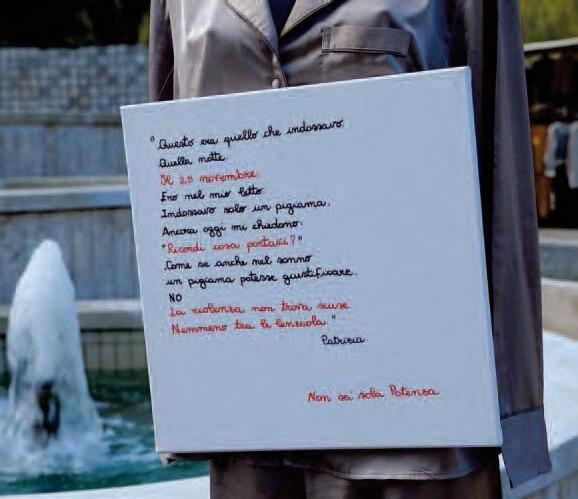 "Questo era quello che indossavo.
Quella notte.
Il 25 novembre.
Ero nel mio letto
Indossavo solo un pigiama.
Ancora oggi mi chiedono:
"Ricordi cosa portavi?"
Come se anche nel sonno
un pigiama potesse giustificare.
NO
La violenza non trova scuse
Nemmeno tra le lenzuola"
Patrizia
Non sei sola Potenza